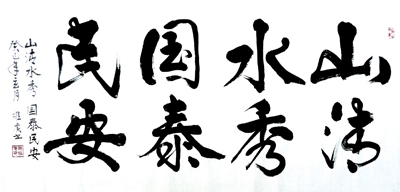 山清
水秀
国泰
民安
山清水秀 国泰民安